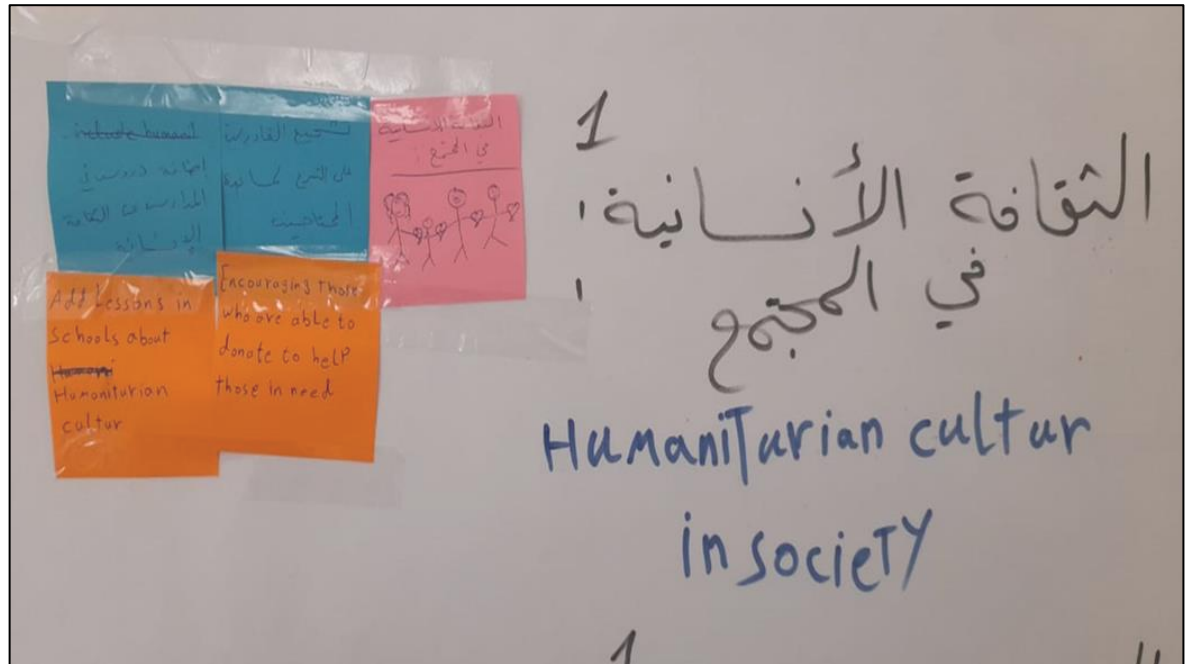 include human
إضافة دروس في
المدارس عن الثقافة
الإنسانية
تشجيع القادرين
على التبرع لمساندة
المحتاجين
الثقافة الانسانية
في المجتمع :
Add Lessons in
Schools about
Humoni
Humoniturian
cultur
Encouraging those
who are able to
donate to help
those in need
1
الثقافة الأنسانية :
في المجتمع
HumaniTurian cultur
in socieTy
1